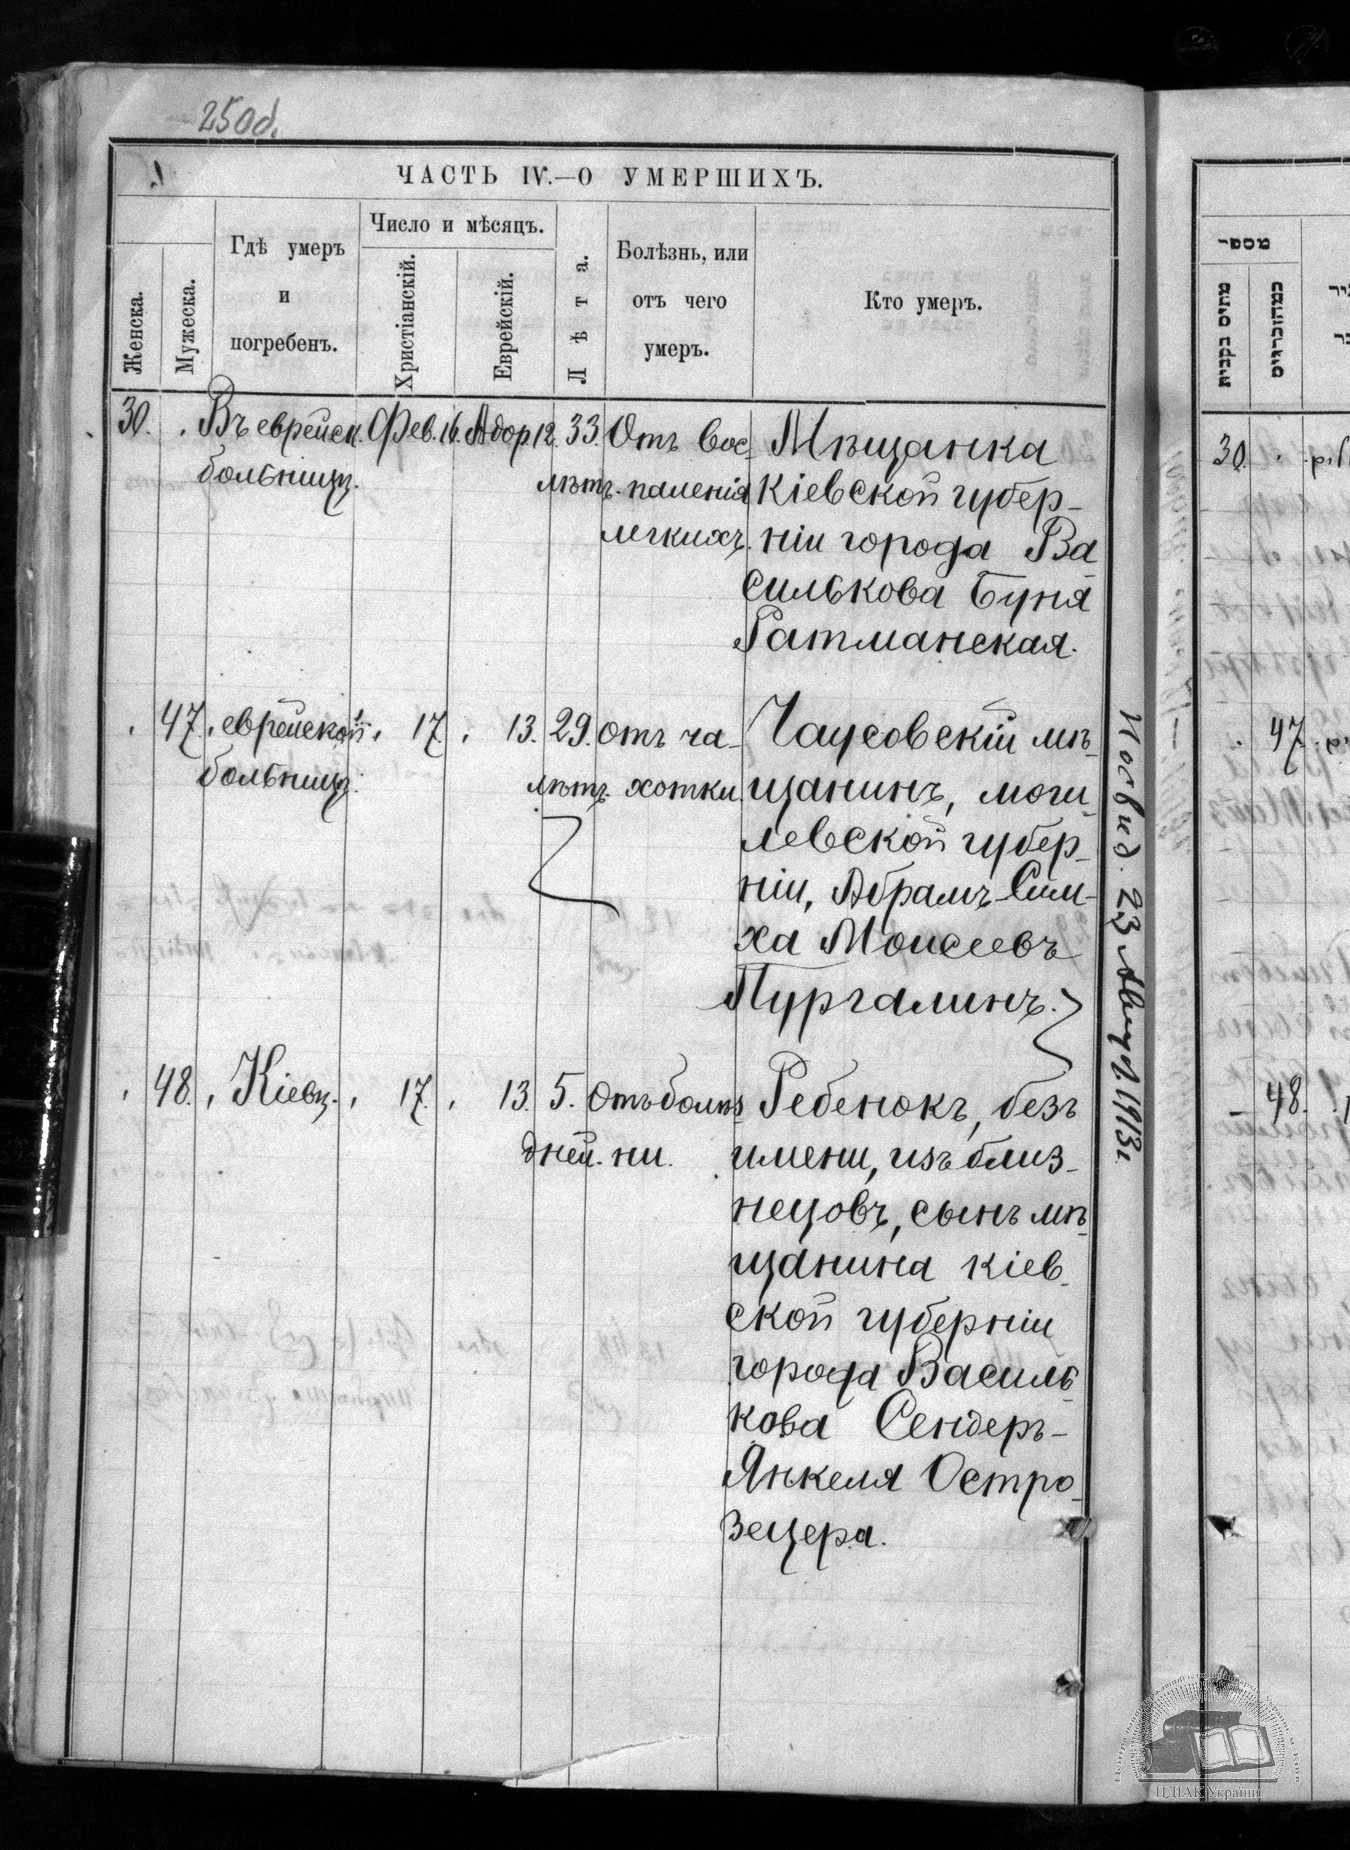 250б.
ЧАСТЬ IV.—О УМЕРШИХЪ.
Женска.
Мужеска.
Гдѣ умеръ
и
погребенъ.
Число и мѣсяцъ.
Христіанскій.
Еврейскій.
Лѣта.
Болѣзнь, или
отъ чего
умеръ.
Кто умеръ.
30. Въ еврейск. Фев. 16. Адор 12. 33. Отъ вос
больницѣ. лѣтъ. паленія
легкихъ.
Мѣщанка
Кіевской губер-
ніи города Ва
силькова Буня
Ратманская.
47. еврейской 17. 13. 29. отъ ча-
больницѣ. лѣтъ. хотки.
Чаусовскій мѣ-
щанинъ, моги-
левской губер-
ніи, Абрамъ-Сим-
ха Моисеевъ
Пургалинъ.
48. Кіевѣ. 17. 13. 5. отъ болѣз
дней. ни.
Ребенокъ, безъ
имени, изъ близ-
нецовъ, сынъ мѣ-
щанина кіев-
ской губерніи
города Василь
кова Сендеръ-
Янкеля Остро-
зецера.
23 Август. 1913 г.
מספר
30.
47.
48.
ЦДІАК України